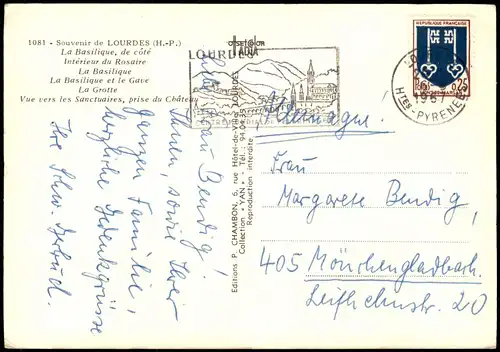 1081 - Souvenir de LOURDES (H.-P.)
La Basilique, de côté
Intérieur du Rosaire
La Basilique
La Basilique et le Gave
La Grotte
Vue vers les Sanctuaires, prise du Château
LOURDES
RÉPUBLIQUE FRANÇAISE
0,25
1967
HTES-PYRENEES
Liebe Frau Bendig!
Ihnen, sowie Ihrer
ganzen Familie,
herzliche Gedenkgrüsse
Ihre Schw.
Editions P. CHAMBON, 6, rue Hôtel-de-Ville, LOURDES
Collection "YAN" - Tél. : 94.04.35
Reproduction interdite
Allemagne!
Frau
Margarete Bendig,
405 Mönchengladbach.
20